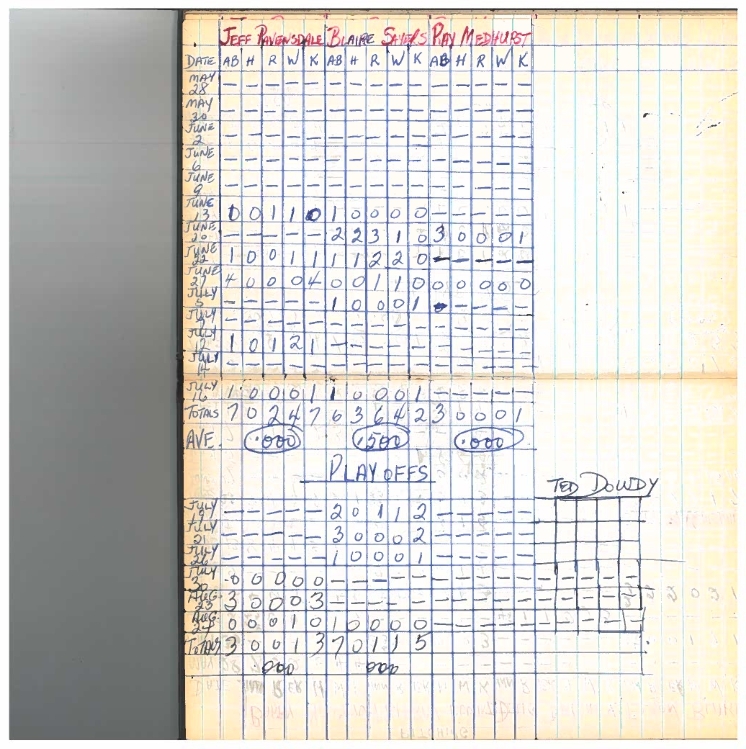 JEFF RAVENSDALE BLAIRE SAYERS RAY MEDHURST
DATE AB H R W K AB H R W K AB H R W K
MAY 28 — — — — — — — — — — — — — — —
MAY 30 — — — — — — — — — — — — — — —
JUNE 2 — — — — — — — — — — — — — — —
JUNE 6 — — — — — — — — — — — — — — —
JUNE 9 — — — — — — — — — — — — — — —
JUNE 13 0 0 1 1 0 1 0 0 0 0 — — — — —
JUNE 20 — — — — — 2 2 3 1 0 3 0 0 0 1
JUNE 22 1 0 0 1 1 1 1 2 2 0 — — — — —
JUNE 27 4 0 0 0 4 0 0 1 1 0 0 0 0 0 0
JULY 5 — — — — — 1 0 0 0 1 — — — — —
JULY — — — — — — — — — — — — — — —
JULY 12 1 0 1 2 1 — — — — — — — — — —
JULY 14 — — — — — — — — — — — — — — —
JULY 16 1 0 0 0 1 1 0 0 0 1 — — — — —
TOTALS 7 0 2 4 7 6 3 6 4 2 3 0 0 0 1
AVE. .000 .500 .000
PLAYOFFS
TED DOWDY
JULY — — — — — 2 0 1 1 2 — — — — —
JULY 21 — — — — — 3 0 0 0 2 — — — — —
JULY 26 — — — — — 1 0 0 0 1 — — — — —
JULY 30 0 0 0 0 0 — — — — — — — — — — — — — — —
AUG. 23 3 0 0 0 3 — — — — — — — — — — — — — — —
AUG. 27 0 0 0 1 0 1 0 0 0 0 — — — — — — — — — —
TOTALS 3 0 0 1 3 7 0 1 1 5
000 000